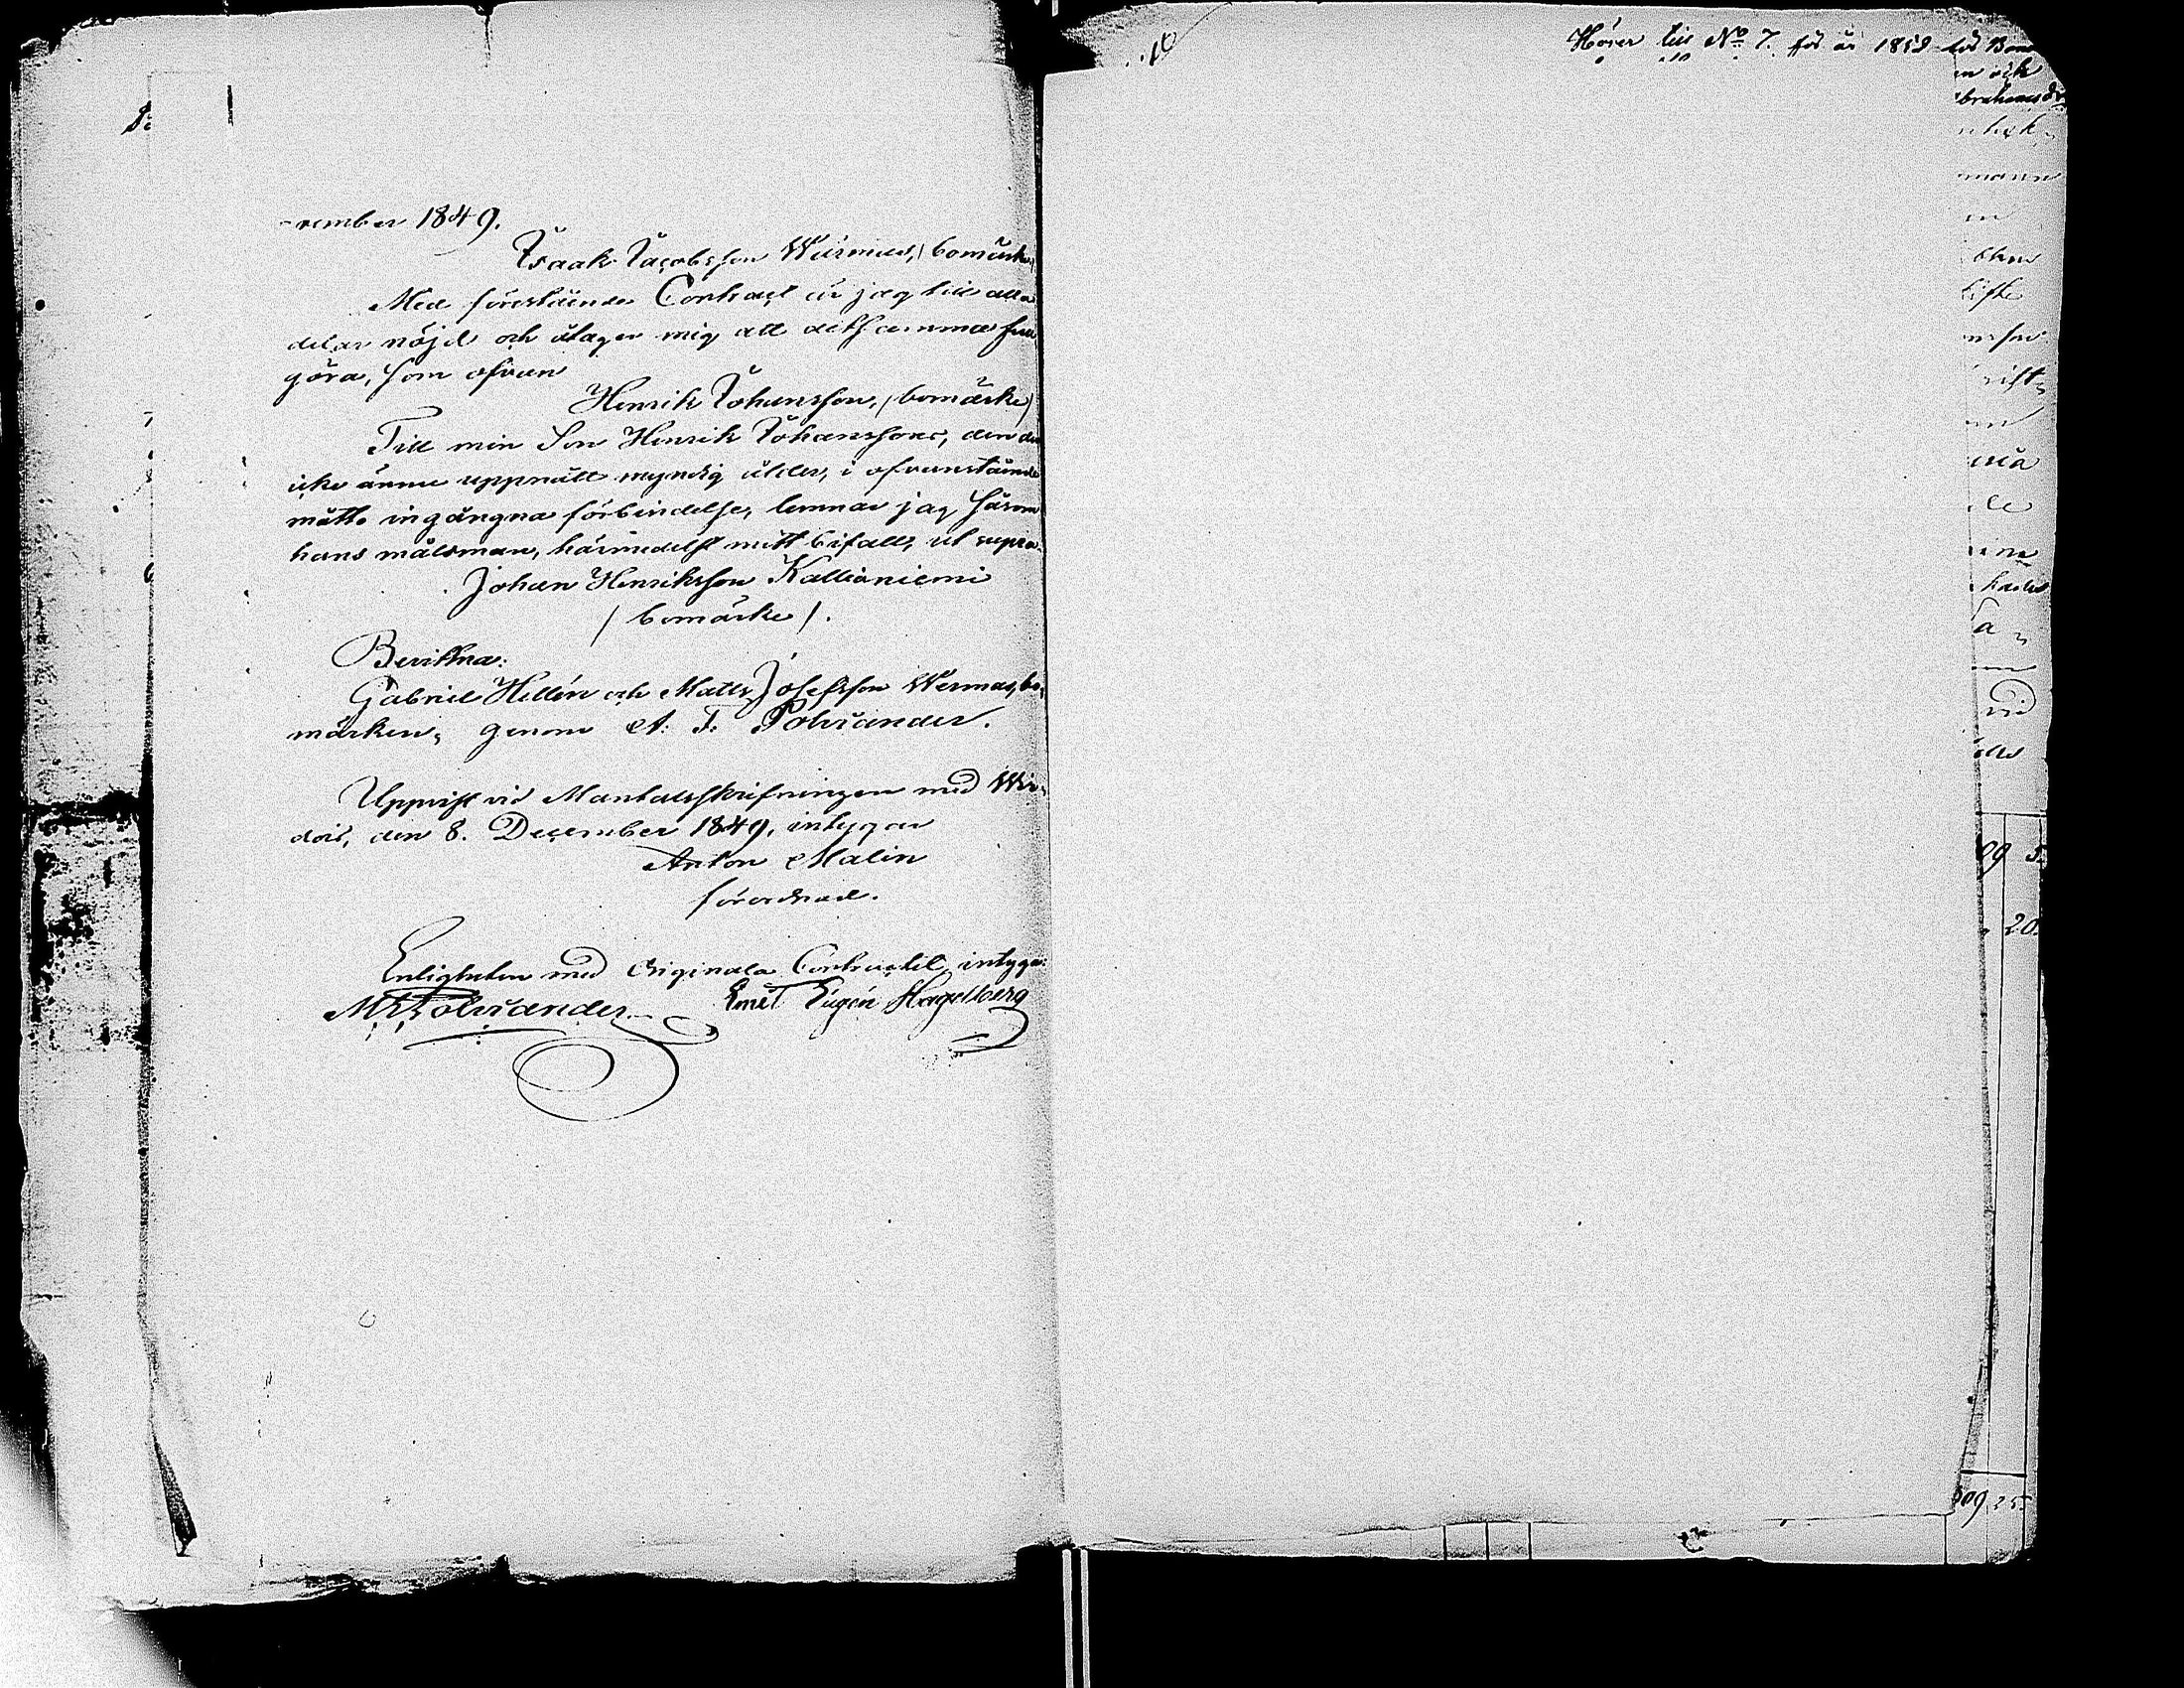 -vember 1849.
Isaak Jacobsson Wärmas, (bomärke)
Med förestående Contract är jag till alla
delar nöjd och åtager mig att detsamma full
göra, som ofvan
Henrik Johansson, (bomärke)
Till min Son Henrik Johanssons, den der
icke ännu uppnått myndig ålder, i ofvanstående
måtto ingångna förbindelse, lemnar jag såsom
hans målsman, härmedelst mitt bifall, ut supra.
Johan Henriksson Kallioniemi
/ bomärke /.
Bevittna:
Gabriel Hellén och Matts Josefsson Wermas, bo,
märken, genom A. F. Polviander.
Uppvist vid Mantalsskrifningen med Wir,
dois, den 8. December 1849, intygar
Anton Malin
förordnad.
Enligheten med Originala Contractet, intyga:
Polviander Emil Eugén Hagelberg
Hörer till No 7. för år 1852 för